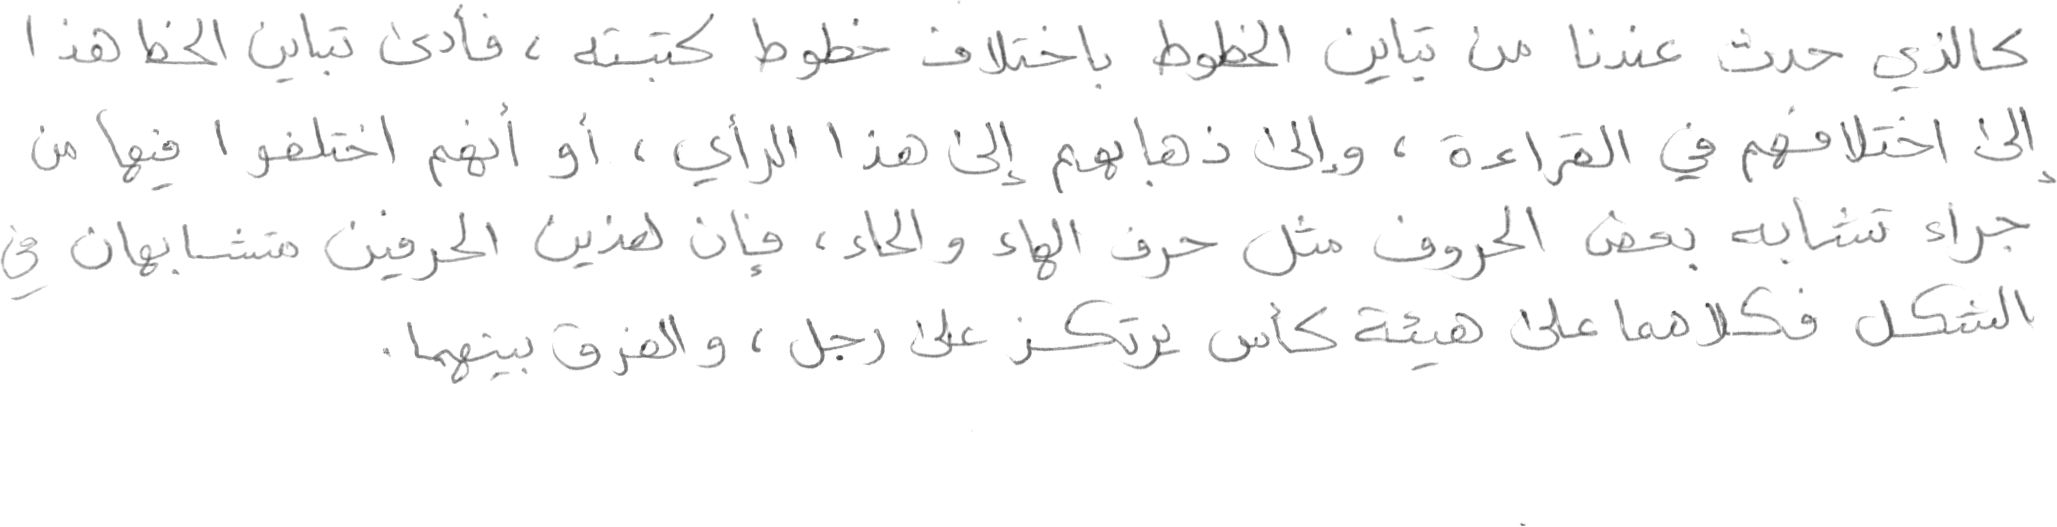 كالذي حدث عندنا من تباين الخطوط باختلاف خطوط كتبته ، فأدى تباين الخط هذا
إلى اختلافهم في القراءة ، وإلى ذهابهم إلى هذا الرأي ، أو أنهم اختلفوا فيها من
جراء تشابه بعض الحروف مثل حرف الهاء والحاء ، فإن هذين الحرفين متشابهان في
الشكل فكلاهما على هيئة كأس يرتكز على رجل ، والفرق بينهما .